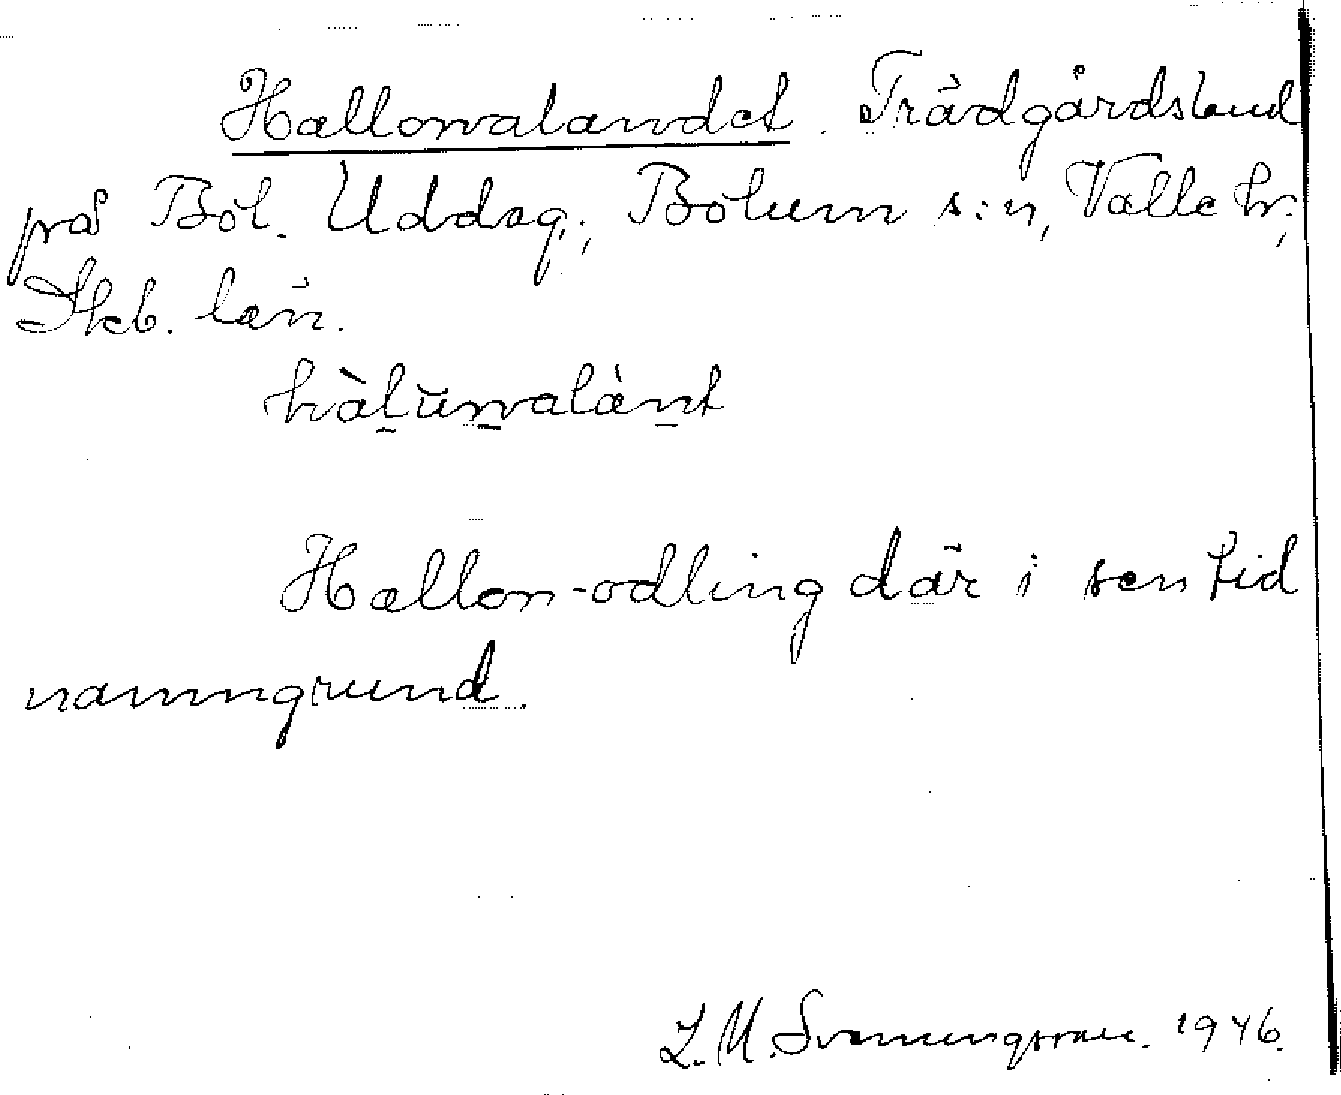 Hallonalandet. Trädgårdsland
på Böl. Uddag., Bolum s:n, Valle hr,
Skb. län.
hàlŭnalànt
Hallon-odling där i sen tid
namngrund.
L. M. Svenungsson. 1946.